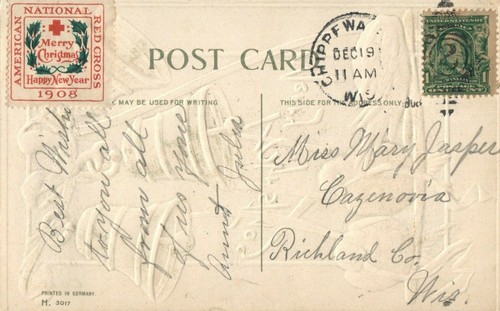 AMERICAN NATIONAL RED CROSS
Merry
Christmas
Happy New Year
1908
POST CARD
CHIPPEWA
DEC 19
11 AM
WIS
MAY BE USED FOR WRITING
THIS SIDE FOR THE ADDRESS ONLY.
Best Wishes
to you all
from all
of us your
Aunt Julia
Miss Mary Jasper
Cazenovia
Richland Co.
Wis.
PRINTED IN GERMANY.
M. 3017